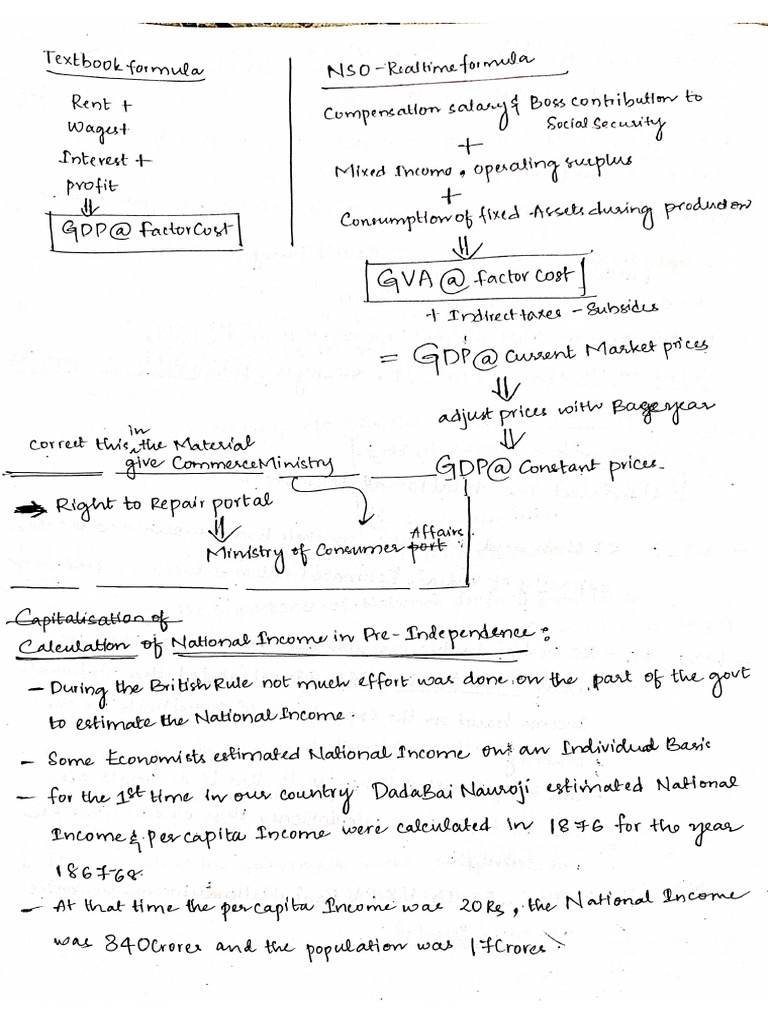 Textbook formula
Rent +
Wages +
Interest +
profit
⇓
GDP @ factor Cost
NSO - Realtime formula
Compensation salary & Boss contribution to
Social Security
+
Mixed Income, operating surplus
+
Consumption of fixed Assets during production
⇓
GVA @ factor cost
+ Indirect taxes - Subsides
= GDP @ Current Market prices
⇓
adjust prices with Bage year
⇓
GDP @ Constant prices.
in
correct this, the Material
give Commerce Ministry
→ Right to Repair portal
⇓
Affairs
Ministry of Consumer port
Capitalisation of
Calculation of National Income in Pre-Independence :
- During the British Rule not much effort was done on the part of the govt
to estimate the National Income.
- Some Economists estimated National Income on an Individual Basic
- for the 1st time in our country DadaBai Nauroji estimated National
Income & per capita Income were calculated in 1876 for the year
1867-68.
- At that time the per capita Income was 20 Rs, the National Income
was 340 Crores and the population was 17 Crores.